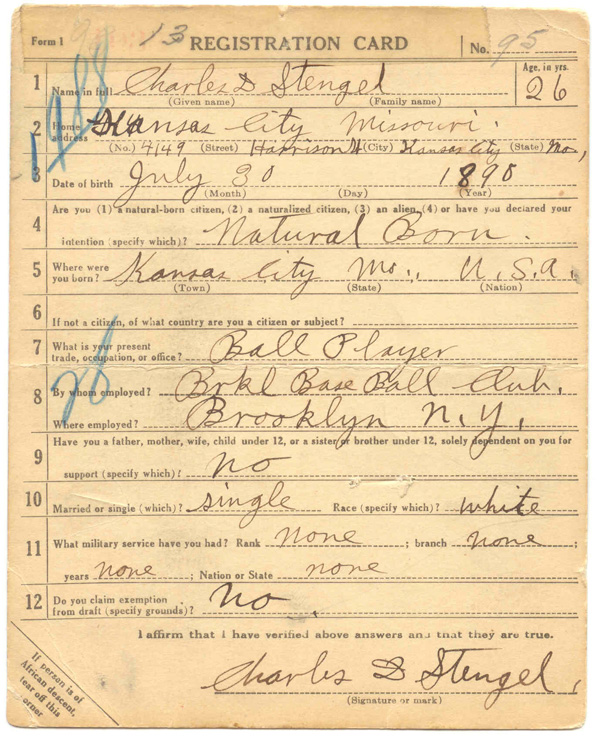 Form 1 13 REGISTRATION CARD No. 95
1 Name in full Charles D Stengel Age, in yrs. 26
(Given name) (Family name)
2 Home address Kansas City Missouri.
(No.) 4149 (Street) Harrison st (City) Kansas City (State) Mo,
3 Date of birth July 30 1890
(Month) (Day) (Year)
Are you (1) a natural-born citizen, (2) a naturalized citizen, (3) an alien, (4) or have you declared your
4 intention (specify which)? Natural Born.
5 Where were you born? Kansas City Mo., U.S.A.
(Town) (State) (Nation)
6 If not a citizen, of what country are you a citizen or subject?
7 What is your present trade, occupation, or office? Ball Player
8 By whom employed? Brkl Base Ball Club.
Where employed? Brooklyn N.Y.
Have you a father, mother, wife, child under 12, or a sister or brother under 12, solely dependent on you for
9 support (specify which)? no
10 Married or single (which)? single Race (specify which)? white
11 What military service have you had? Rank none ; branch none ;
years none ; Nation or State none
12 Do you claim exemption from draft (specify grounds)? No.
I affirm that I have verified above answers and that they are true.
Charles D Stengel,
(Signature or mark)
If person is of
African descent,
tear off this
corner
1988
28